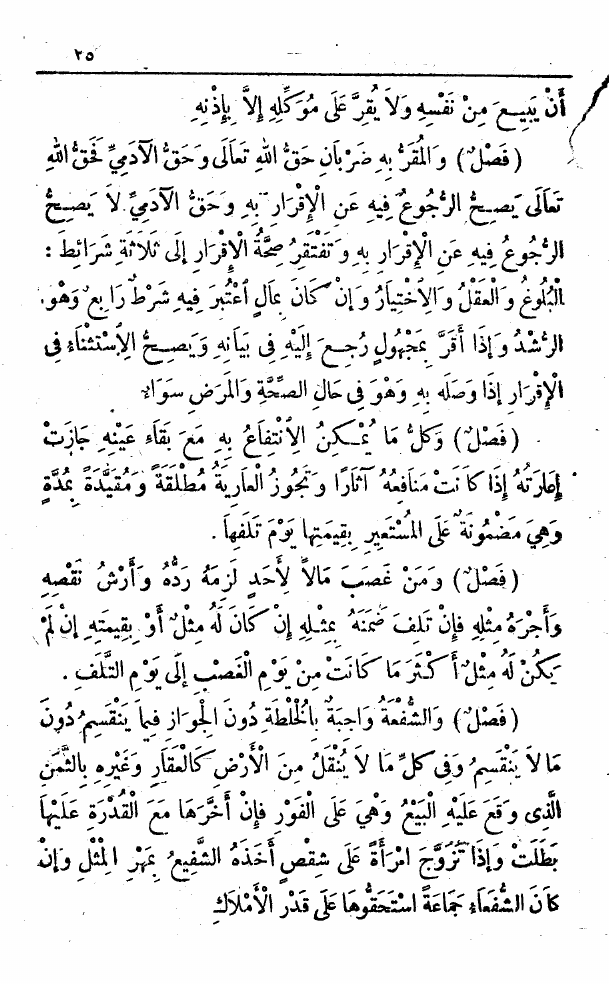 ٢٥
أَنْ يَبِيعَ مِنْ نَفْسِهِ وَلَا يُقِرَّ عَلَى مُوَكِّلِهِ إِلَّا بِإِذْنِهِ
(فَصْلٌ) وَالْمُقَرُّ بِهِ ضَرْبَانِ حَقُّ اللهِ تَعَالَى وَحَقُّ الْآدَمِيِّ فَحَقُّ اللهِ
تَعَالَى يَصِحُّ الرُّجُوعُ فِيهِ عَنِ الْإِقْرَارِ بِهِ وَحَقُّ الْآدَمِيِّ لَا يَصِحُّ
الرُّجُوعُ فِيهِ عَنِ الْإِقْرَارِ بِهِ وَتَفْتَقِرُ صِحَّةُ الْإِقْرَارِ إِلَى ثَلَاثَةِ شَرَائِطَ :
الْبُلُوغُ وَالْعَقْلُ وَالِاخْتِيَارُ وَإِنْ كَانَ بِمَالٍ اعْتُبِرَ فِيهِ شَرْطٌ رَابِعٌ وَهُوَ
الرُّشْدُ وَإِذَا أَقَرَّ بِمَجْهُولٍ رُجِعَ إِلَيْهِ فِى بَيَانِهِ وَيَصِحُّ الِاسْتِثْنَاءُ فِى
الْإِقْرَارِ إِذَا وَصَلَهُ بِهِ وَهُوَ فِى حَالِ الصِّحَّةِ وَالْمَرَضِ سَوَاءٌ
(فَصْلٌ) وَكُلُّ مَا يُمْكِنُ الِانْتِفَاعُ بِهِ مَعَ بَقَاءِ عَيْنِهِ جَازَتْ
إِعَارَتُهُ إِذَا كَانَتْ مَنَافِعُهُ آثَارًا وَتَجُوزُ الْعَارِيَةُ مُطْلَقَةً وَمُقَيَّدَةً بِمُدَّةٍ
وَهِيَ مَضْمُونَةٌ عَلَى الْمُسْتَعِيرِ بِقِيمَتِهَا يَوْمَ تَلَفِهَا .
(فَصْلٌ) وَمَنْ غَصَبَ مَالًا لِأَحَدٍ لَزِمَهُ رَدُّهُ وَأَرْشُ نَقْصِهِ
وَأُجْرَةُ مِثْلِهِ فَإِنْ تَلِفَ ضَمِنَهُ بِمِثْلِهِ إِنْ كَانَ لَهُ مِثْلٌ أَوْ بِقِيمَتِهِ إِنْ لَمْ
يَكُنْ لَهُ مِثْلٌ أَكْثَرَ مَا كَانَتْ مِنْ يَوْمِ الْغَصْبِ إِلَى يَوْمِ التَّلَفِ .
(فَصْلٌ) وَالشُّفْعَةُ وَاجِبَةٌ بِالْخُلْطَةِ دُونَ الْجِوَارِ فِيمَا يَنْقَسِمُ دُونَ
مَا لَا يَنْقَسِمُ وَفِى كُلِّ مَا لَا يُنْقَلُ مِنَ الْأَرْضِ كَالْعَقَارِ وَغَيْرِهِ بِالثَّمَنِ
الَّذِى وَقَعَ عَلَيْهِ الْبَيْعُ وَهِيَ عَلَى الْفَوْرِ فَإِنْ أَخَّرَهَا مَعَ الْقُدْرَةِ عَلَيْهَا
بَطَلَتْ وَإِذَا تَزَوَّجَ امْرَأَةً عَلَى شِقْصٍ أَخَذَهُ الشَّفِيعُ بِمَهْرِ الْمِثْلِ وَإِنْ
كَانَ الشُّفَعَاءُ جَمَاعَةً اسْتَحَقُّوهَا عَلَى قَدْرِ الْأَمْلَاكِ